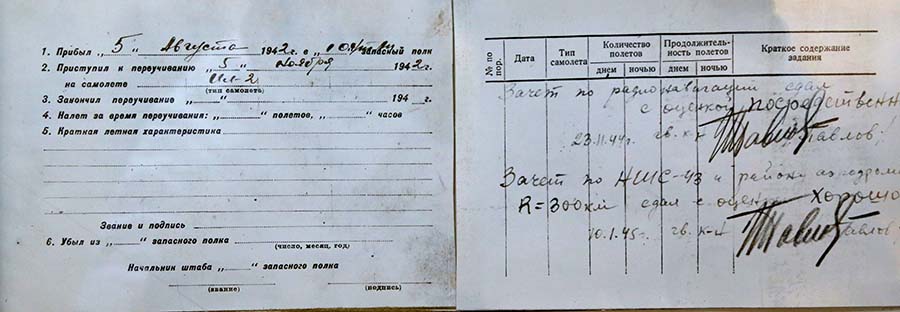 1. Прибыл „5" Августа 1942 г. в запасный полк
2. Приступил к переучиванию „5" Ноября 1942 г.
на самолете Ил-2
(тип самолета)
3. Закончил переучивание „ " 194 г.
4. Налет за время переучивания: „ " полетов, „ " часов
5. Краткая летная характеристика
Звание и подпись
6. Убыл из „ " запасного полка
(число, месяц, год)
Начальник штаба „ " запасного полка
(звание) (подпись)
№ по пор.
Дата
Тип самолета
Количество полетов
днем ночью
Продолжительность полетов
днем ночью
Краткое содержание задания
Зачет по радионавигации сдал
с оценкой посредственн
23.11.44г. гв. к-н Павлов
Зачет по НШС-43 и району аэродрома
R=300км сдал с оценк хорошо
10.1.45г. гв. к-н Павлов